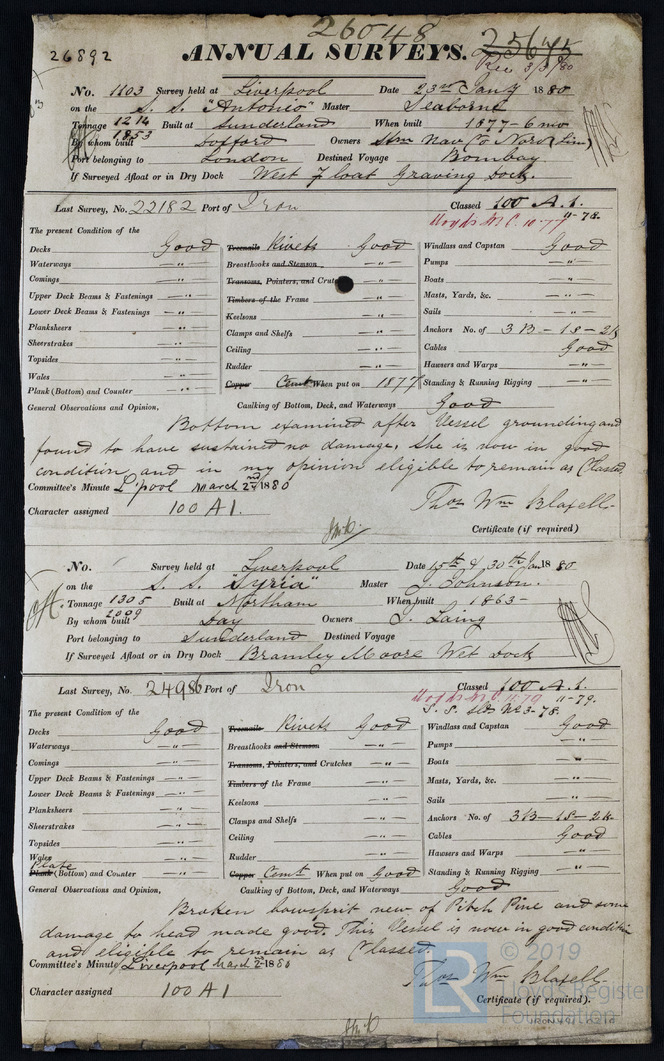 26048
26892
ANNUAL SURVEYS.
25675
Rec 3/3/80
No. 1103 Survey held at Liverpool Date 23rd Jany 1880
on the S. S. "Antonio" Master Seaborne
Tonnage 1214 1853 Built at Sunderland When built 1877-6 mo
By whom built Owners Stm Nav Co Nord (Lim)
Port belonging to London Destined Voyage Bombay
If Surveyed Afloat or in Dry Dock West Float Graving Dock.
Last Survey, No. 22182 Port of Iron Classed 100 A. 1.
Lloyds M C. 10-77 11-78.
The present Condition of the
Decks Good Treenails Rivets Good Windlass and Capstan Good
Waterways " Breasthooks and Stemson " Pumps "
Comings " Transoms, Pointers, and Crutches " Boats "
Upper Deck Beams & Fastenings " Timbers of the Frame " Masts, Yards, &c. "
Lower Deck Beams & Fastenings " Keelsons " Sails "
Planksheers " Clamps and Shelfs " Anchors No. of 3 B - 1 S - 2 K
Sheerstrakes " Ceiling " Cables Good
Topsides " Rudder " Hawsers and Warps "
Wales " Copper Cemt When put on 1877 Standing & Running Rigging "
Plank (Bottom) and Counter " Caulking of Bottom, Deck, and Waterways Good
General Observations and Opinion,
Bottom examined after Vessel grounding and
found to have sustained no damage. She is now in good
condition and in my opinion eligible to remain as Classed,
Committee's Minute L'pool March 2nd 1880
Thos Wm Blaxell
Character assigned 100 A 1.
Certificate (if required)
No. Survey held at Liverpool Date 15th & 30th Jan 1880
on the S. S. "Syria" Master J. Johnson.
Tonnage 1305 2009 Built at Northam When built 1863-
By whom built Day Owners J. Laing
Port belonging to Sunderland Destined Voyage
If Surveyed Afloat or in Dry Dock Bramley Moore Wet Dock
Last Survey, No. 24986 Port of Iron Classed 100 A. 1.
Lloyds M C 11.79 11-79.
S. S. Sld No 3-78.
The present Condition of the
Decks Good Treenails Rivets Good Windlass and Capstan Good
Waterways " Breasthooks and Stemson " Pumps "
Comings " Transoms, Pointers, and Crutches " Boats "
Upper Deck Beams & Fastenings " Timbers of the Frame " Masts, Yards, &c. "
Lower Deck Beams & Fastenings " Keelsons " Sails "
Planksheers " Clamps and Shelfs " Anchors No. of 3 B - 1 S - 2 K
Sheerstrakes " Ceiling " Cables Good
Topsides " Rudder " Hawsers and Warps "
Wales " Copper Cemt When put on Good Standing & Running Rigging "
Plate Plank (Bottom) and Counter " Caulking of Bottom, Deck, and Waterways Good
General Observations and Opinion,
Broken bowsprit new of Pitch Pine and some
damage to head made good. This Vessel is now in good condition
and eligible to remain as Classed.
Committee's Minute Liverpool March 2nd 1880
Thos Wm Blaxell
Character assigned 100 A 1
Certificate (if required).
LR © 2019
Lloyd's Register
Foundation